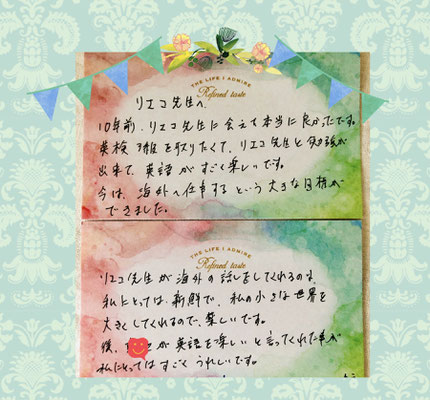 THE LIFE I ADMIRE
Refined taste
リエコ先生へ
10年前、リエコ先生に会えて本当に良かったです。
英検3級を取りたくて、リエコ先生と勉強が
出来て、英語がすごく楽しいです。
今は、海外へ仕事するという大きな目標が
できました。
THE LIFE I ADMIRE
Refined taste
リエコ先生が海外の話しをしてくれるのは、
私にとっては新鮮で、私の小さな世界を
大きくしてくれるので、楽しいです。
後、が英語を楽しいと言ってくれた事が
私にとってはすごくうれしいです。